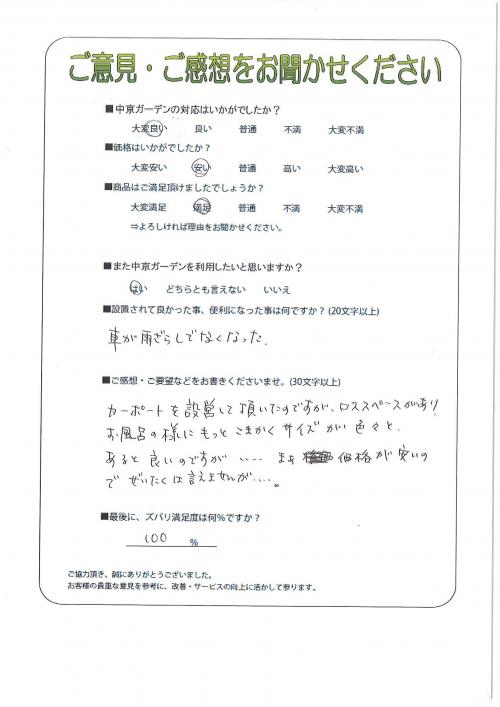 ご意見・ご感想をお聞かせください
■中京ガーデンの対応はいかがでしたか？
大変良い 良い 普通 不満 大変不満
■価格はいかがでしたか？
大変安い 安い 普通 高い 大変高い
■商品はご満足頂けましたでしょうか？
大変満足 満足 普通 不満 大変不満
⇒よろしければ理由をお聞かせください。
■また中京ガーデンを利用したいと思いますか？
はい どちらとも言えない いいえ
■設置されて良かった事、便利になった事は何ですか？(20文字以上)
車が雨ざらしでなくなった.
■ご感想・ご要望などをお書きくださいませ。(30文字以上)
カーポートを設営して頂いたのですが、ロススペースがあり
お風呂の様にもっとこまかくサイズが色々と、
あると良いのですが‥‥ まぁ 価格が安いの
で ぜいたくは言えませんが‥‥。
■最後に、ズバリ満足度は何％ですか？
100 ％
ご協力頂き、誠にありがとうございました。
お客様の貴重な意見を参考に、改善・サービスの向上に活かして参ります。